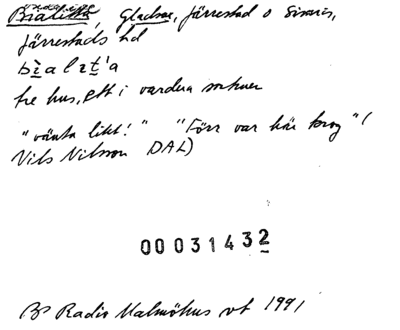 Bialitta, Gladsax, Järrestad o Simris,
Järrestads hd
tre hus, ett i vardera socknen
"vänta litt!" "Förr var här krog" (
Nils Nilsson DAL)
00031432
BP Radio Malmöhus vt 1991